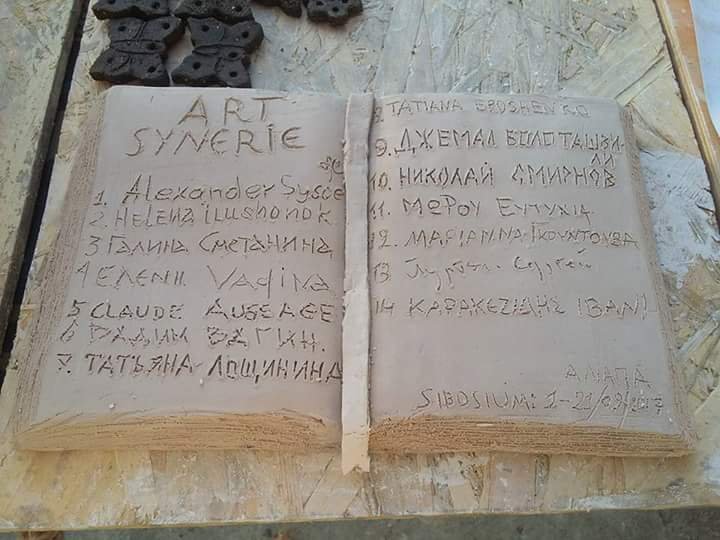 ART
SYNERIE
1. Alexander Sysoe
2. HELENA ilushonok
3 ГАЛИНА СМЕТАНИНА
4 ΕΛΕΝΗ Vadina
5 CLAUDE AUBEAGE
6 ВАДИМ ВАГИН.
7. ТАТЬЯНА ЛОЩИНИНА
8. TATIANA EROSHENKO
9. ДЖЕМАЛ БОЛОТАШВИ-
ЛИ
10. НИКОЛАЙ СМИРНОВ
11. ΜΕΡΟΥ ΕΥΤΥΧΙΑ
12. ΜΑΡΙΑΝΝΑ ΓΚΟΥΝΤΟΥΒΑ
13 Сергей
14 ΚΑΡΑΚΕΖΙΔΗΣ ΙΒΑΝ
АНАПА
SIBOSIUM: 1-21/09